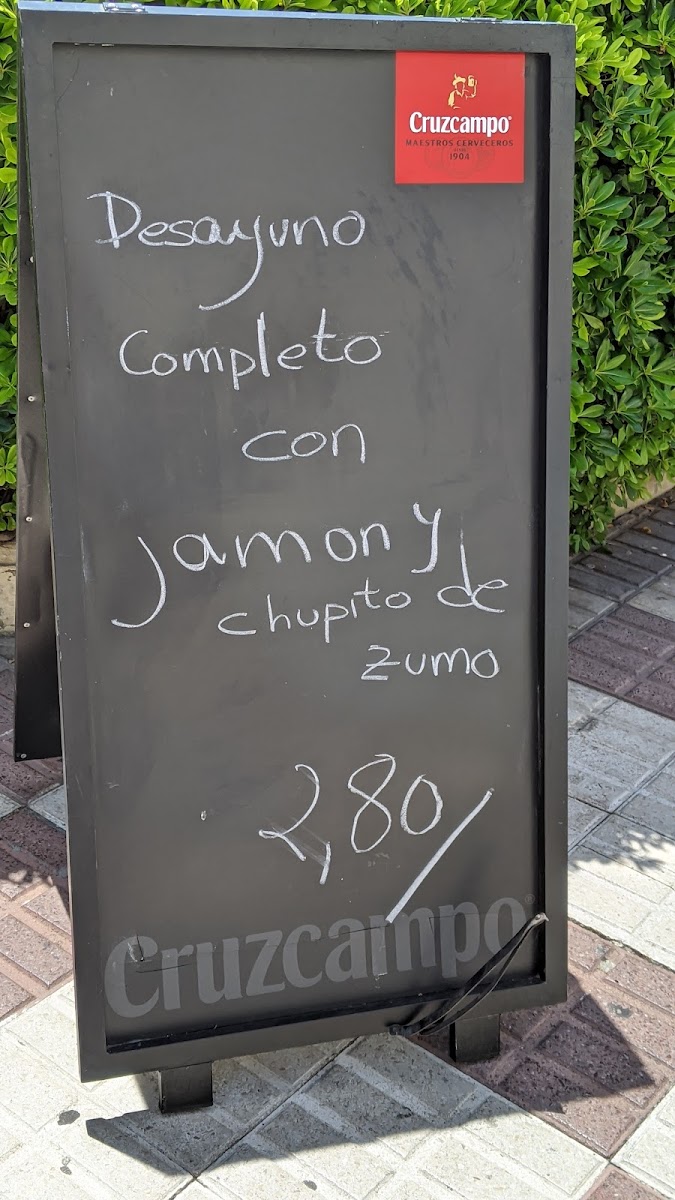 Cruzcampo®
MAESTROS CERVECEROS
DESDE
1904
Desayuno
Completo
con
Jamon y
chupito de
zumo
2,80/
Cruzcampo®